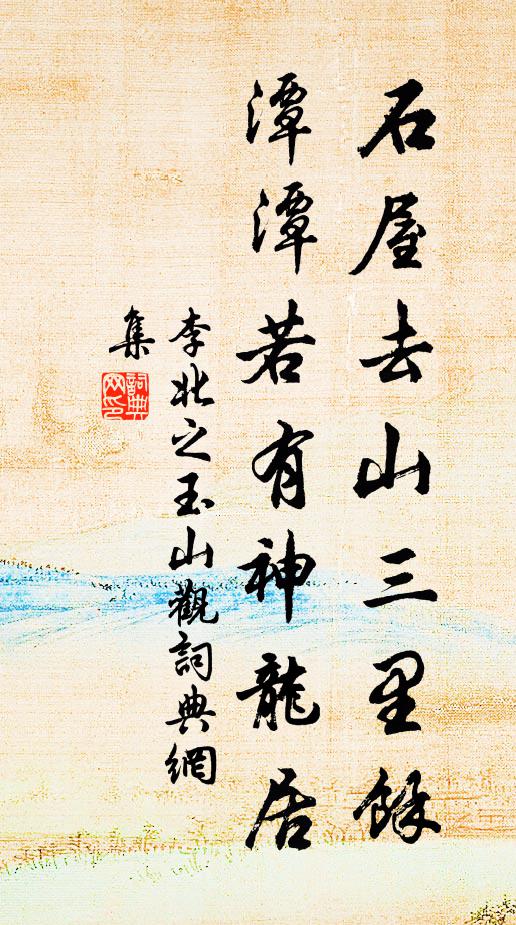 石屋去山三里餘
潭潭若有神龍居
李兆之玉山觀詞典網
集
詞典
网印